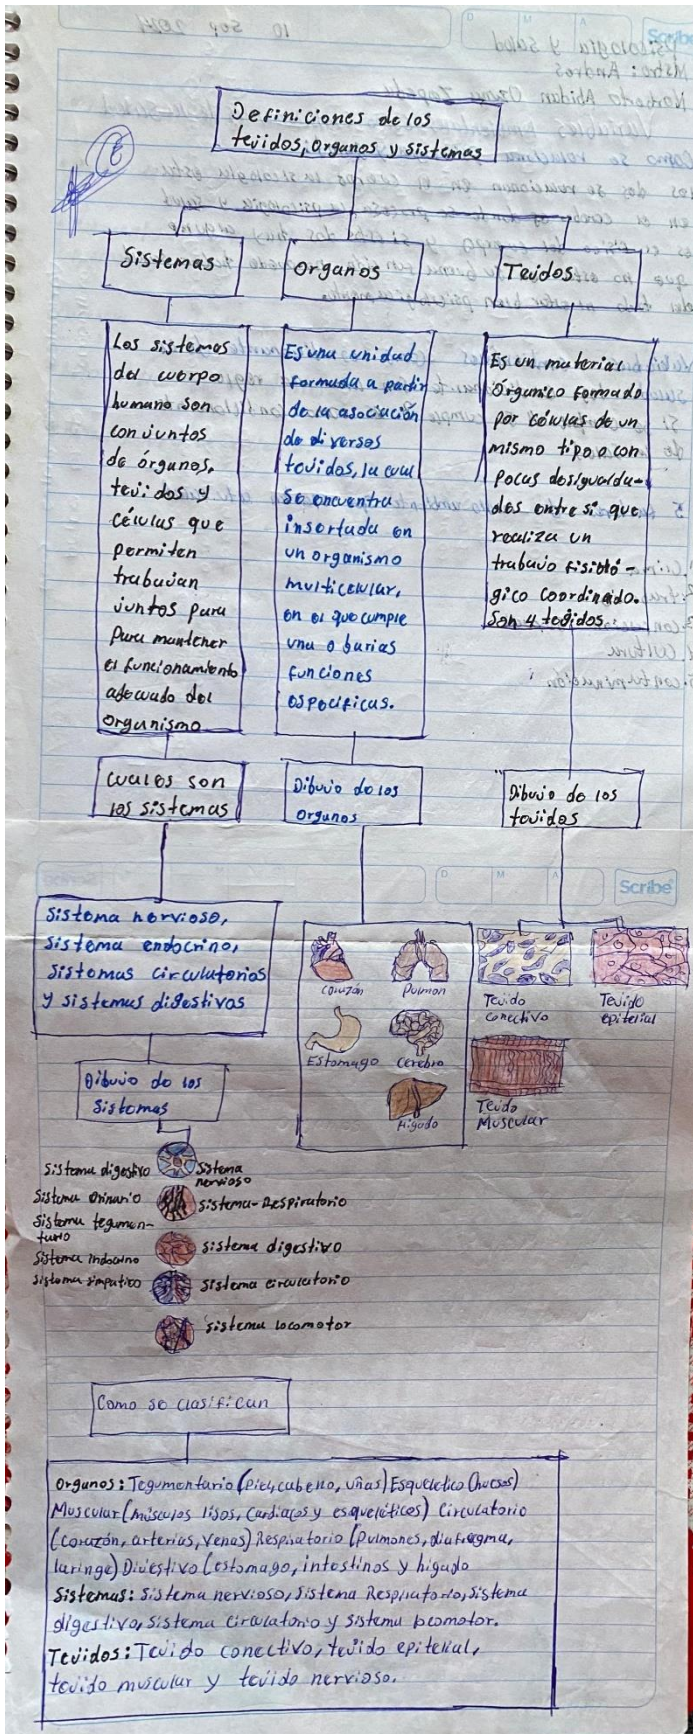 Definiciones de los
tejidos, organos y sistemas
Sistemas
Organos
Tejidos
Los sistemas
del cuerpo
humano son
conjuntos
de órganos,
tejidos y
células que
permiten
trabajan
juntos para
para mantener
el funcionamiento
adecuado del
organismo
Es una unidad
formada a partir
de la asociación
de diversos
tejidos, la cual
se encuentra
insertada en
un organismo
multicelular,
en el que cumple
una o barias
funciones
especificas.
Es un material
Órganico formado
por células de un
mismo tipo o con
pocas desigualda-
des entre si que
realiza un
trabajo fisioló-
gico coordinado.
Son 4 tegidos.
cuales son
los sistemas
Dibujo de los
organos
Dibujo de los
tejidos
Scribe
sistema nervioso,
sistema endocrino,
sistemas circulatorios
y sistemas digestivos
Corazón
Pulmon
Estomago
Cerebro
Higado
Tejido
conectivo
Tejido
epitelial
Tejido
Muscular
Dibujo de los
sistemas
sistema digestivo
sistema
nervioso
sistema Orinario
sistema-Respiratorio
sistema tegumen-
tario
sistema digestivo
sistema indocrino
sistema simpatico
sistema circulatorio
sistema locomotor
Como se clasifican
Organos: Tegumentario (piel, cabeno, uñas) Esqueletico (huesos)
Muscular (músculos lisos, cardiacos y esqueléticos) Circulatorio
(corazón, arterias, venas) Respiratorio (pulmones, diafragma,
laringe) Divestivo (estomago, intestinos y higado
Sistemas: sistema nervioso, sistema Respiratorio, sistema
digestivo, sistema circulatorio y sistema locomotor.
Tejidos: Tejido conectivo, tejido epitelial,
tejido muscular y tejido nervioso.